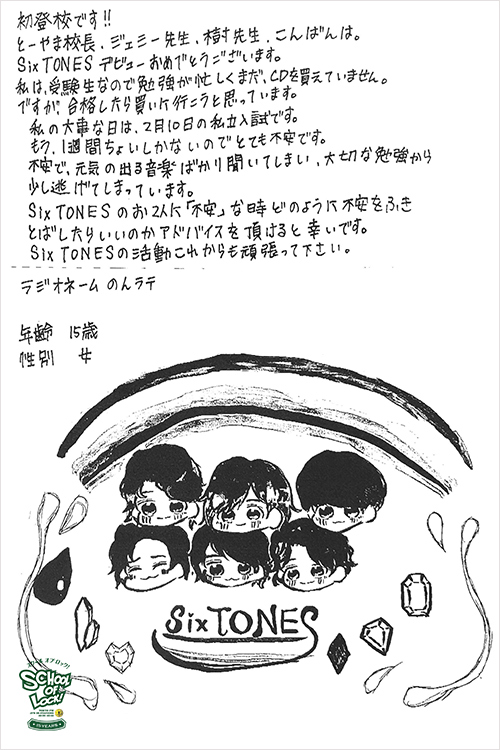 初登校です!!
とーやま校長、ジェミー先生、樹先生、こんばんは。
SixTONES デビューおめでとうございます。
私は、受験生なので勉強が忙しくまだ、CDを買えていません。
ですが、合格したら買いに行こうと思っています。
私の大事な日は、2月10日の私立入試です。
もう、1週間ちょいしかないのでとても不安です。
不安で、元気の出る音楽ばかり聞いてしまい、大切な勉強から
少し逃げてしまっています。
SixTONESのお2人に「不安」な時どのように不安をふき
とばしたらいいのかアドバイスを頂けると幸いです。
SixTONESの活動これからも頑張って下さい。
ラジオネーム のんラテ
年齢 15歳
性別 女
SixTONES
SCHOOL
OF
LOCK!